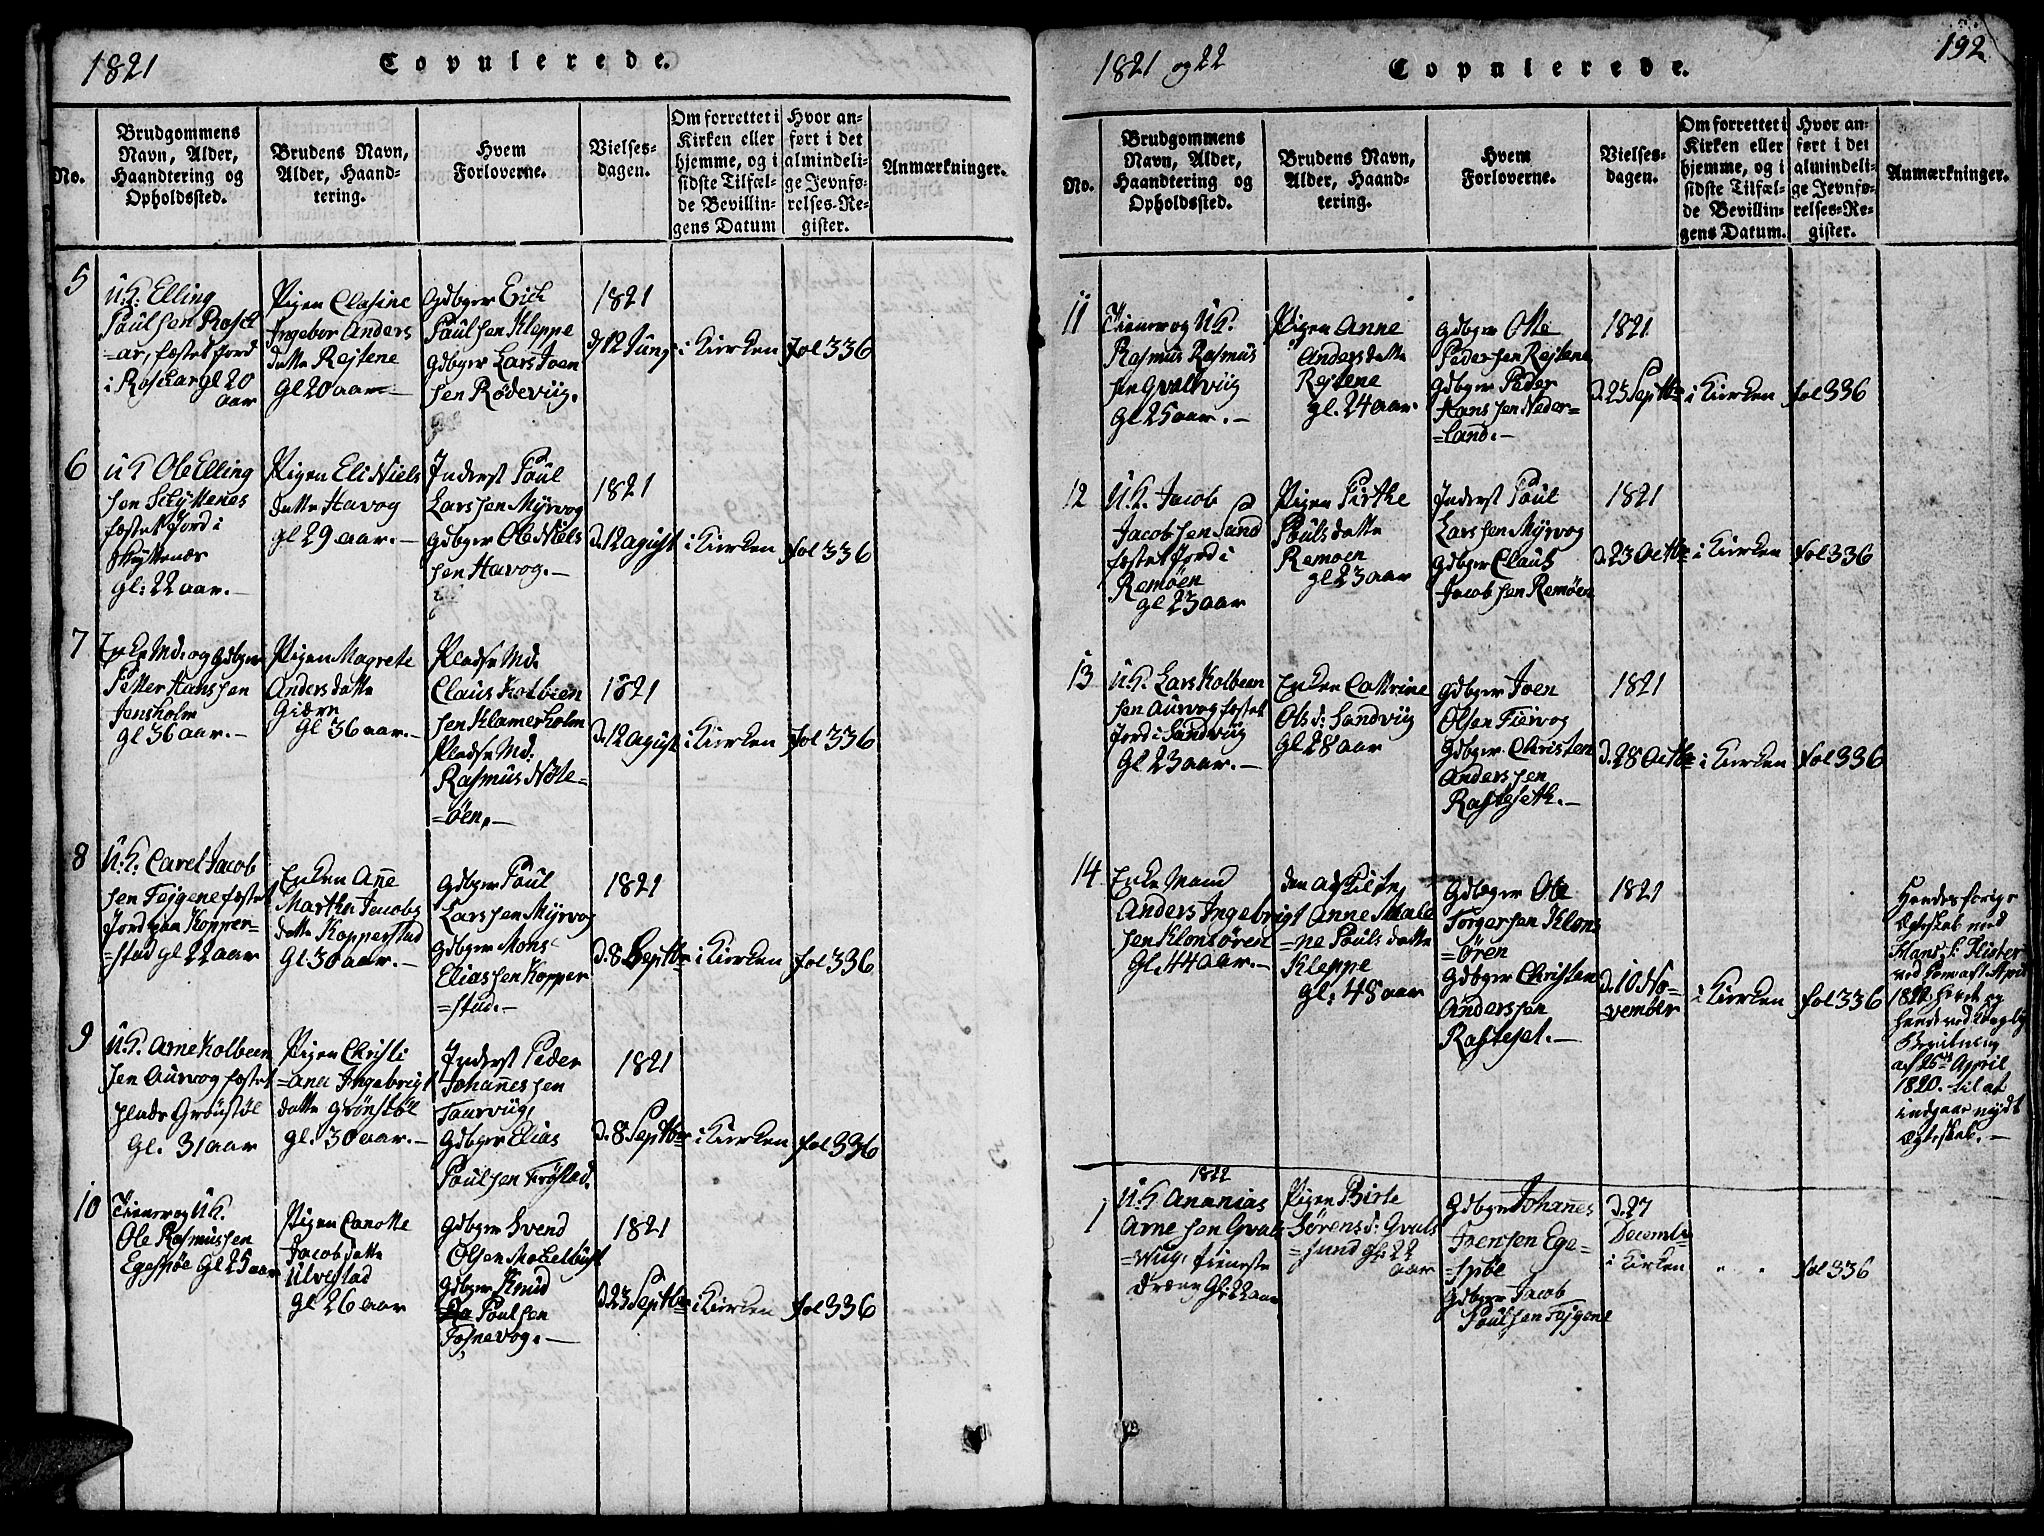 1821
Copulerede.
No.
Brudgommens
Navn, Alder,
Haandtering og
Opholdssted.
Brudens Navn,
Alder, Haand-
tering.
Hvem
Forloverne.
Vielses-
dagen.
Om forrettet i
Kirken eller
hjemme, og i
sidste Tilfæl-
de Bevillin-
gens Datum
Hvor an-
ført i det
almindeli-
ge Jevnfø-
relses-Re-
gister.
Anmærkninger.
5
U.K. Elling
Poulsen Rosch
=ar, fæstet Jord
i Roschar gl 20
aar
Pigen Clasine
Ingebor Anders
datte Rejtene
Gl 20 aar
Gdbger Erich
Poulsen Kleppe
gdbger Lars Iven
sen Rødeviig.
1821
d 12 Juny
i Kirken
fol 336
6
U K Ole Elling
sen Skyttenes
fæstet Jord i
Skyttenes
gl: 22 aar.
Pigen Eli Niels
datte Havog
gl 29 aar.
Inderst Poul
Larssen Myrvog
gdbger Ole Niels
sen Havog.
1821
d. 12 agust
i Kirken
fol 336
7
Enke Md. og gdbger
Petter Hanssen
Jensholm
gl 36 aar.
Pigen Magrete
Anders datte
Giære
gl 36 aar.
Pladse Md.
Claus Kolbeen
sen Klamerholm
Pladse Md:
Rasmus Nøte=
=øen,
1821
d. 12 agust
i Kirken
fol 336
8
U.K. Carel Jacob
sen Tejgene fæstet
Jord paa Kopper=
=stad gl 22 aar
Enken Añe
Martha Jacobs
datte Kopperstad
gl 30 aar.
gdbger Poul
Larssen Myrvog
gdbger Mons
Eliassen Kopper
=stad.
1821
d. 8 Septbr
i Kirken
fol 336
9
U.K. Arne Kolbeen
sen Aurvog fæstet
Grønstøl
gl. 31 aar
Pigen Christi
=ana Ingebrigt
datte Grønstøl
gl. 30 aar.
Inderst Peder
Johañessen
Taurviig,
gdbger Elias
Poulsen Frøstad.
1821
d. 8 Septbr
i Kirken
fol 336
10
Tiener og U K.
Ole Rasmussen
Egessøe Gl 25 aar
Pigen Canotte
Jacob datte
Ulvestad
gl 26 aar
gdbger Svend
Olsen Mobelbust
gdbger Knud
Poulsen
Tosnevog.
1821
d 23 Septbr
i Kirken
fol 336
1821 og 22
Copulerede.
192
No.
Brudgommens
Navn, Alder,
Haandtering og
Opholdssted.
Brudens Navn,
Alder, Haand-
tering.
Hvem
Forloverne.
Vielses-
dagen.
Om forrettet i
Kirken eller
hjemme, og i
sidste Tilfæl-
de Bevillin-
gens Datum.
Hvor an-
ført i det
almindeli-
ge Jevnfø-
relses-Re-
gister.
Anmærkninger.
11
Tiener og U K.
Rasmus Rasmus
sen Gvalsviig
gl 25 aar.
Pigen Anne
Anders datte
Rejtene
gl. 24 aar.
gdbger Otte
Pedersen Rejtene
gdbger Peder
Hanssen Neder=
=land.
1821
d. 23 Septbr
i Kirken
fol 336
12
U.K. Jacob
Jacobsen Sand
fæstet Jord i
Remøen
gl 23 aar
Pigen Pirthe
Pouls datte
Remoen
gl 23 aar
Inderst Poul
Larssen Myrvog
gdbger Claus
Jacobsen Remøen
1821
d. 23 Octbr
i Kirken
fol 336
13
U.K. Lars Kolbeen
sen Aurvog fæstet
Jord i Sandviig
gl 23 aar.
Enken Cattrine
Ols d: Sandviig
Gl 28 aar
gdbger Iven
Olsen Tiervog
gdbger: Christen
Anderssen
Rasteseth.
1821
d. 28 Octbr
i Kirken
fol 336
14
Enke Mand
Anders Ingebrigt
sen Klonsøren
Gl. 44 aar.
den adskilte
Anne Male
=ne Pouls datte
Kleppe
gl. 48 aar
Gdbger Ole
Torgersen Klons
=ören
gdbger Christen
Anderssen
Rasteset.
1821
d. 10 No=
=vember
i Kirken
fol 336
Hendes forige
Egteskab med
Hans
April
og
hende ved Kongelig
Bevilning
af 26de April
1820. til at
indgaae nydt
Egteskab.
1822
1
U.K. Ananias
Arnesen Gvals
=wiig, tieneste
dreng Gl 22 aar
Pigen Birte
Sørens d: Gvals
=sund gl: 22
aar
Gdbger Johañes
Ivensen Ege=
=sybøe
gdbger Jacob
Poulsen Tejgene
d. 27
Decembr
i Kirken
fol 336